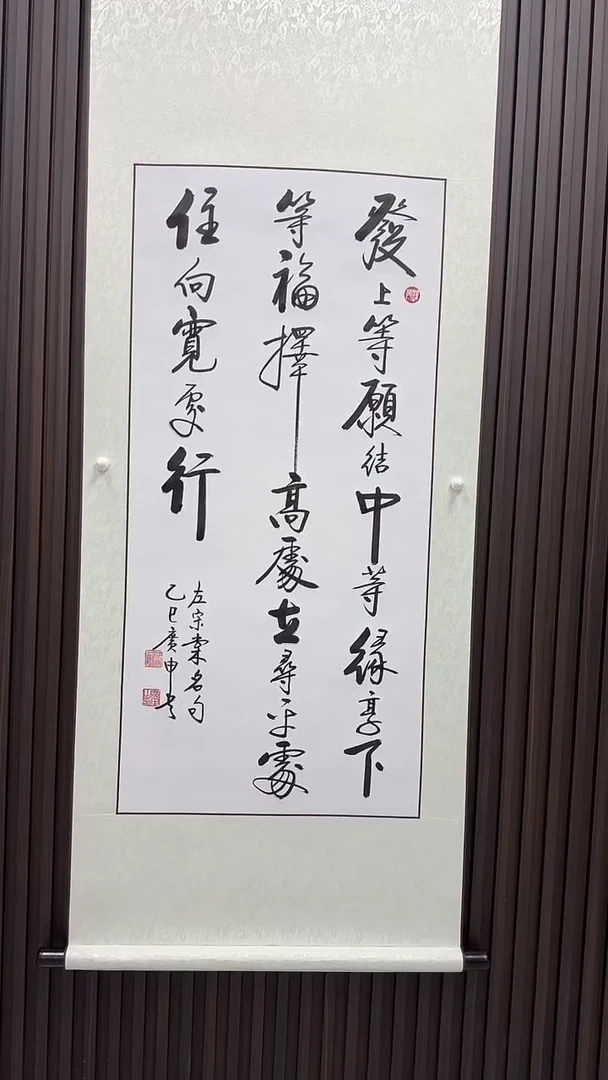 發上等願結中等緣享下
等福擇高處立尋平處
住向寬處行
左宗棠名句
乙巳廣申書